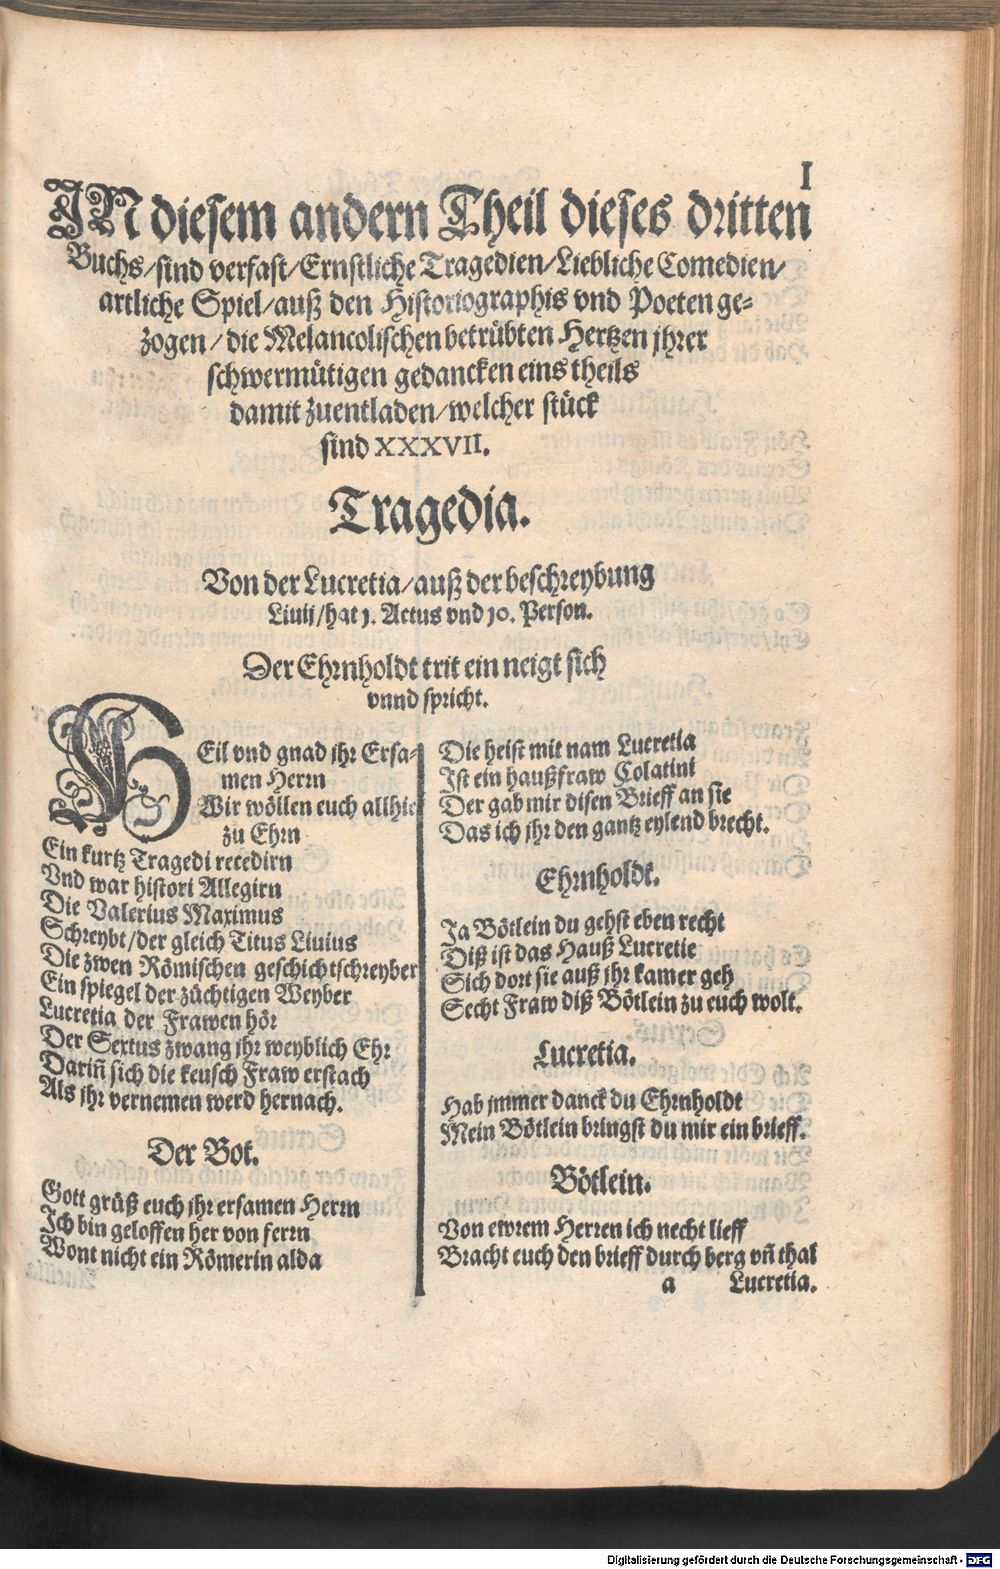 I
IN diesem andern Theil dieses dritten
Buchs/sind verfast/Ernstliche Tragedien/Liebliche Comedien/
artliche Spiel/auß den Historiographis vnd Poeten ge-
zogen/die Melancolischen betrübten Hertzen jhrer
schwermütigen gedancken eins theils
damit zuentladen/welcher stück
sind XXXVII.
Tragedia.
Von der Lucretia/auß der beschreybung
Liuij/hat 1. Actus vnd 10. Person.
Der Ehrnholdt trit ein neigt sich
vnnd spricht.
HEil vnd gnad jhr Ersa-
men Herrn
Wir wöllen euch allhie
zu Ehrn
Ein kurtz Tragedi recedirn
Vnd war histori Allegirn
Die Valerius Maximus
Schreybt/der gleich Titus Liuius
Die zwen Römischen geschichtschreyber
Ein spiegel der züchtigen Weyber
Lucretia der Frawen hör
Der Sextus zwang jhr weyblich Ehr
Darin̄ sich die keusch Fraw erstach
Als jhr vernemen werd hernach.
Der Bot.
Gott grüß euch jhr ersamen Herrn
Ich bin geloffen her von ferrn
Wont nicht ein Römerin alda
Die heist mit nam Lucretia
Ist ein haußfraw Colatini
Der gab mir disen Brieff an sie
Das ich jhr den gantz eylend brecht.
Ehrnholdt.
Ja Bötlein du gehst eben recht
Diß ist das Hauß Lucretie
Sich dort sie auß jhr kamer geh
Secht Fraw diß Bötlein zu euch wolt.
Lucretia.
Hab jmmer danck du Ehrnholdt
Mein Bötlein bringst du mir ein brieff.
Bötlein.
Von ewrem Herren ich necht lieff
Bracht euch den brieff durch berg vn̄ thal
a Lucretia.
Digitalisierung gefördert durch die Deutsche Forschungsgemeinschaft - DFG